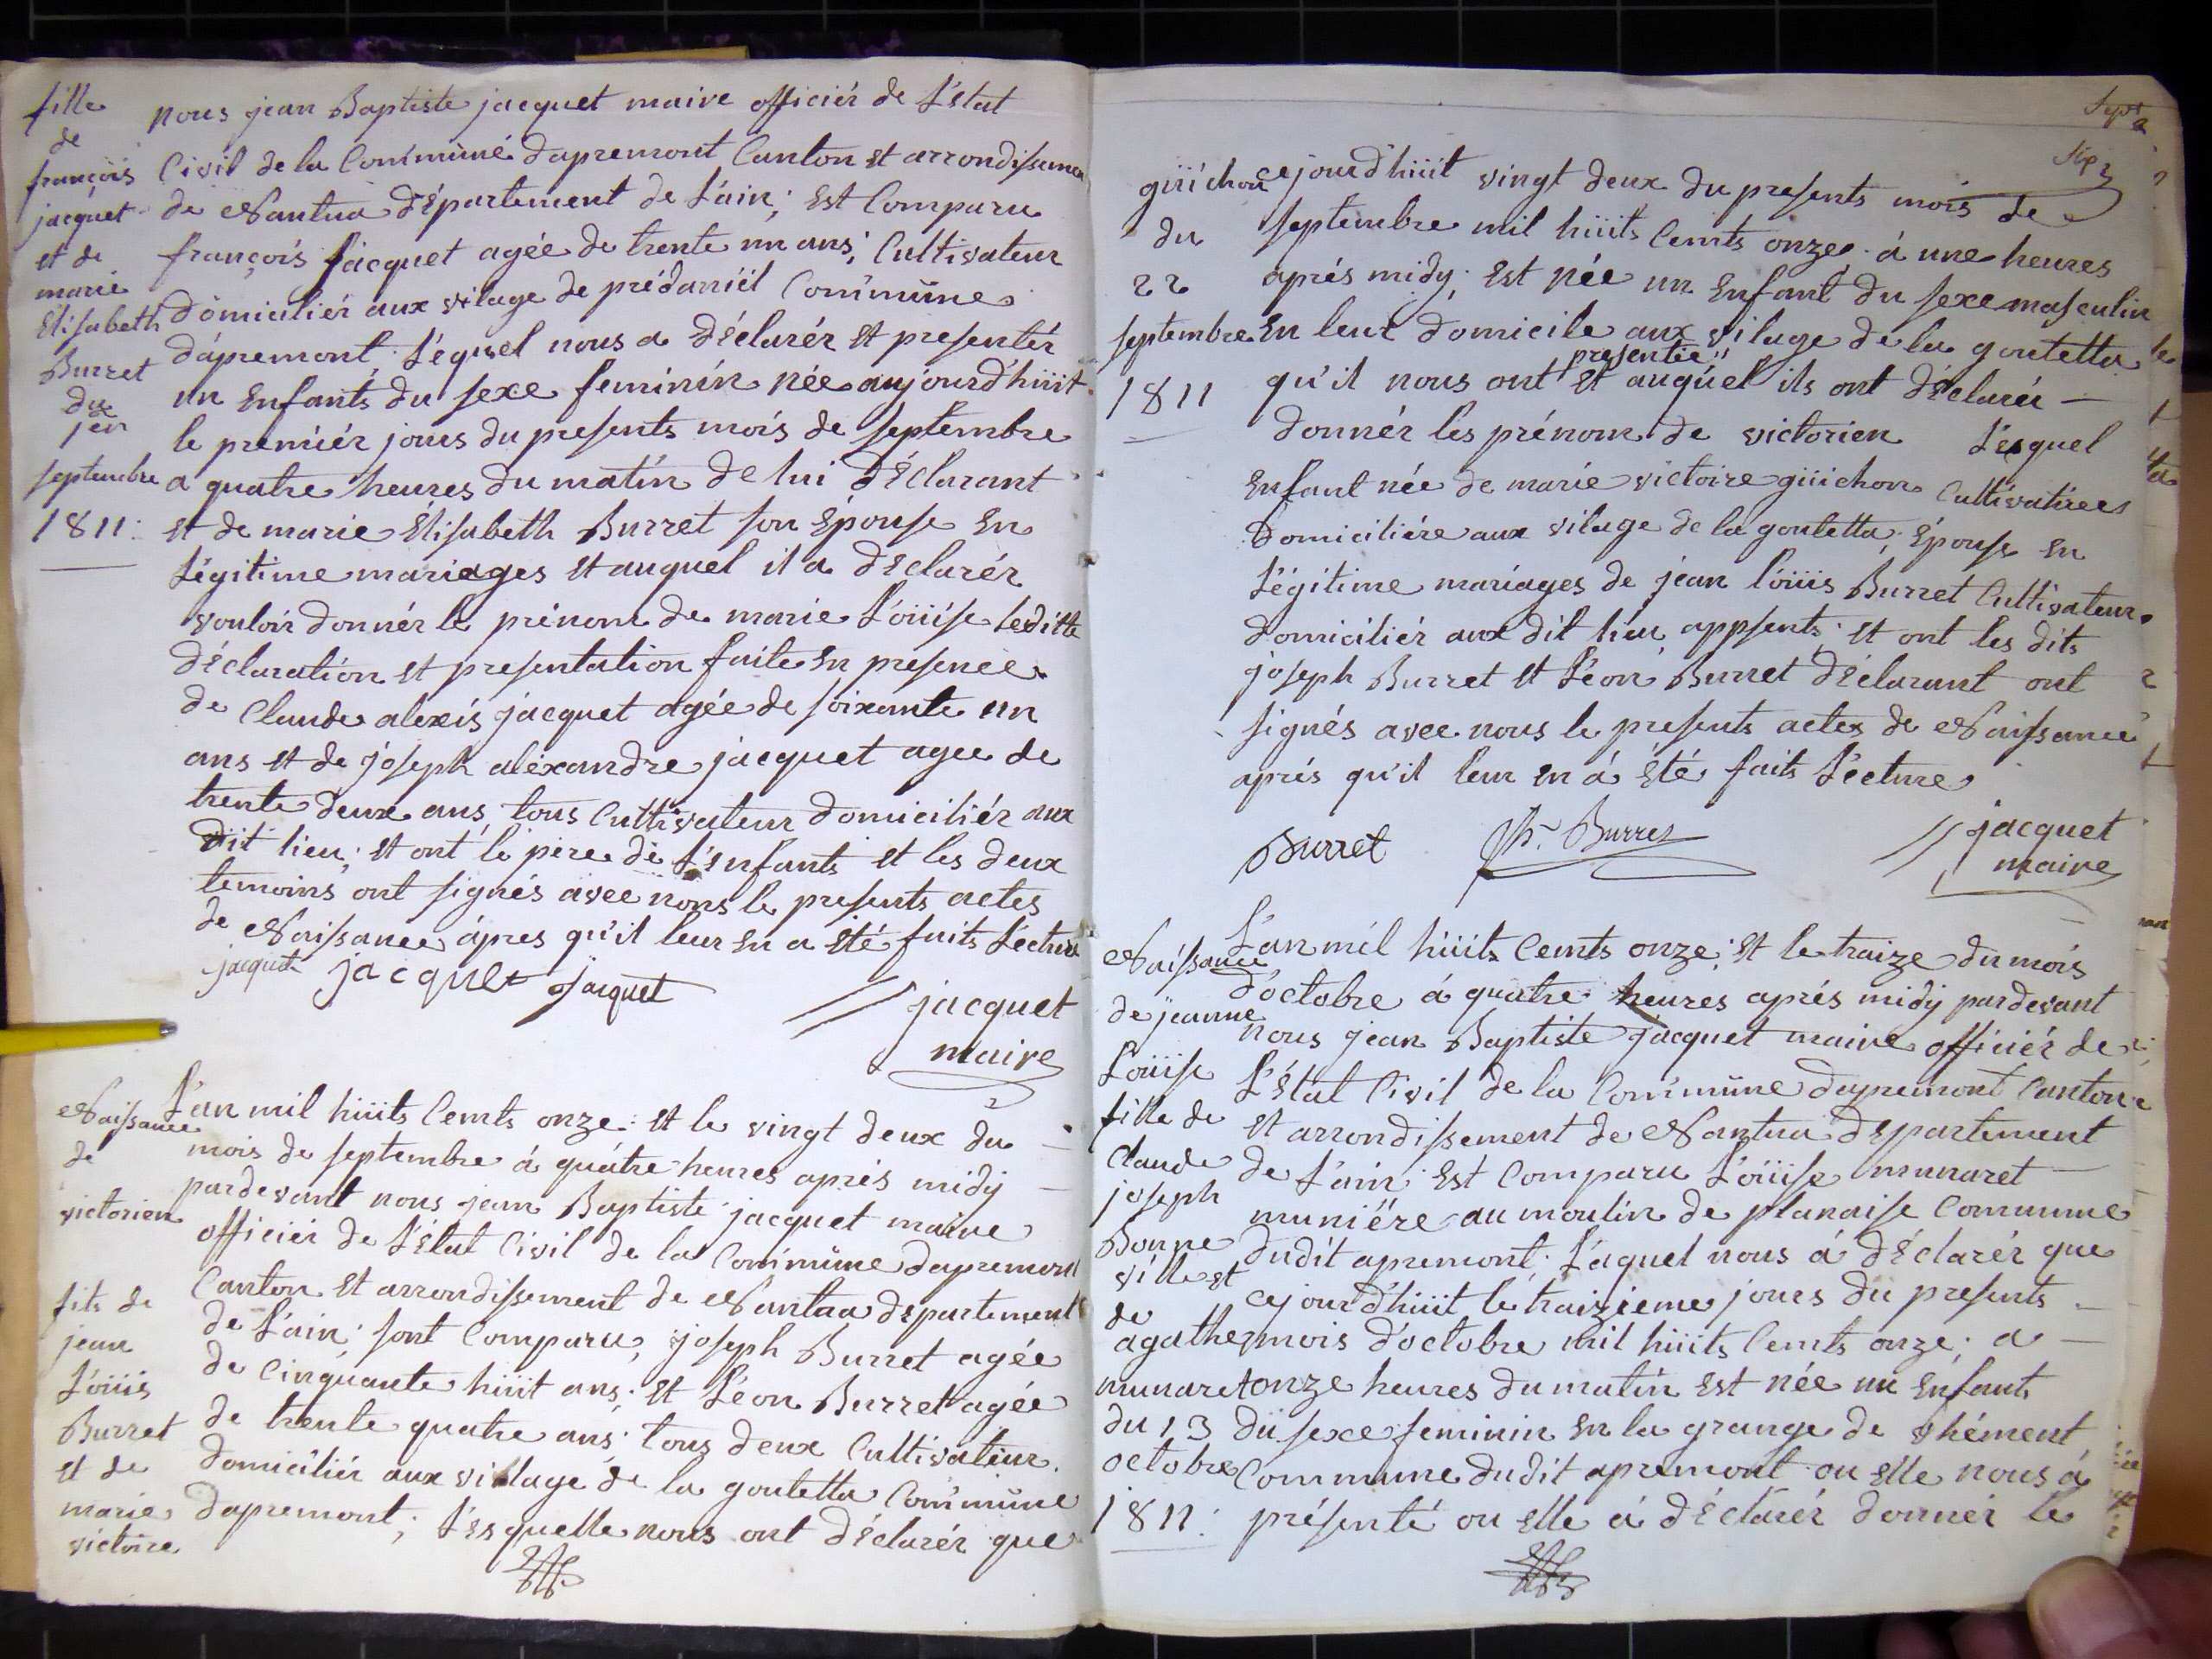 fille
de
françois
jacquet
et de
marie
Elisabeth
Burret
du
1er
septembre
1811:
nous jean Baptiste jacquet maire officiér de L'état
Civil de la Commune dapremont Canton et arrondissemen
de Nantua Département de L'ain; Est Comparu
françois jacquet agée de trente un ans; Cultivateur
domiciliér aux vilage de prédanriél Commune
dápremont; Léquel nous a Déclarér et presentér
un Enfants du sexe feminin née aujourd'hüit
le premiér jours du presents mois de septembre
a quatre heures du matin de lui Déclarant
et de marie Elisabeth Burret son Epouse En
Légitime mariages et auquel il a Déclarér
vouloir donnér le prénom de marie Loüise leditte
Déclaration et presentation faite en presence
de Claude alexis jacquet agée de soixante un
ans et de joseph aléxandre jacquet agee de
trente deux ans, tous Cultivateur domiciliér aux
dit lieu; et ont le pére de L'enfants et les deux
temoins ont signés avec nous le presents actes
de Naissance ápres qu'il leur en a été faits Lécture
jacquet jacquet jacquet
jacquet
maire
Naissance
de
victorien
fils de
jean
Loüis
Burret
et de
marie
victoire
L'an mil hüits Cemts onze: et le vingt deux du
mois de septembre á quátre heures aprés midy
pardevant nous jean Baptiste jacquet maire
officier de L'état Civil de la Commune dapremont
Canton et arrondissement de Nantua departement
de L'ain; sont Comparu, joseph Burret agée
de Cinquante hüit ans; et Léon Burret agée
de trente quatre ans; tous deux Cultivateur
domiciliér aux village de la goutetta Commune
dapremont; Lesquelle nous ont déclarér que
Sept
güichon
du
22
septembre
1811
cejourd'hüit vingt deux du presents mois de
septembre mil hüits Cemts onze; á une heures
aprés midy; Est née un Enfant du sexe masculin
en leur domicile aux vilage de la goutetta
presentée
qu'il nous ont et auquel ils ont déclarér
donnér les prénom de victorien Lequel
Enfant née de marie victoire güichon Cultivatrices
domiciliére aux vilage de la goutetta, Epouse en
Légitime mariages de jean Loüis Burret Cultivateur
domiciliér aux dit lieu, appsents; et ont les dits
joseph Burret et Léon Burret déclarant ont
signés avec nous le presents actes de Naissance
aprés qu'il leur en á été faits Lécture
Burret Jh. Burret
jacquet
maire
Naissance
de jeanne
Loüise
fille de
claude
joseph
Bonne
ville et
de
agathe
munaret
du 13
octobre
1811:
L'an mil hüits Cemts onze; et le traize du mois
d'octobre á quatre heures aprés midÿ pardevant
nous jean Baptiste jacquet maire officiér de
L'état Civil de la Commune dapremont Canton
et arrondissement de Nantua département
de L'ain; Est Comparu Loüise munaret
muniére au moulin de planaise Commune
dudit apremont; Laquel nous á déclarér que
cejourd'hüit le traizieme jours du presents
mois d'octobre mil hüits Cemts onze; a
onze heures du matin est née un Enfants
du sexe feminin en la grange de thément
Commune dudit apremont ou elle nous á
présenté ou elle á déclarér donnér le